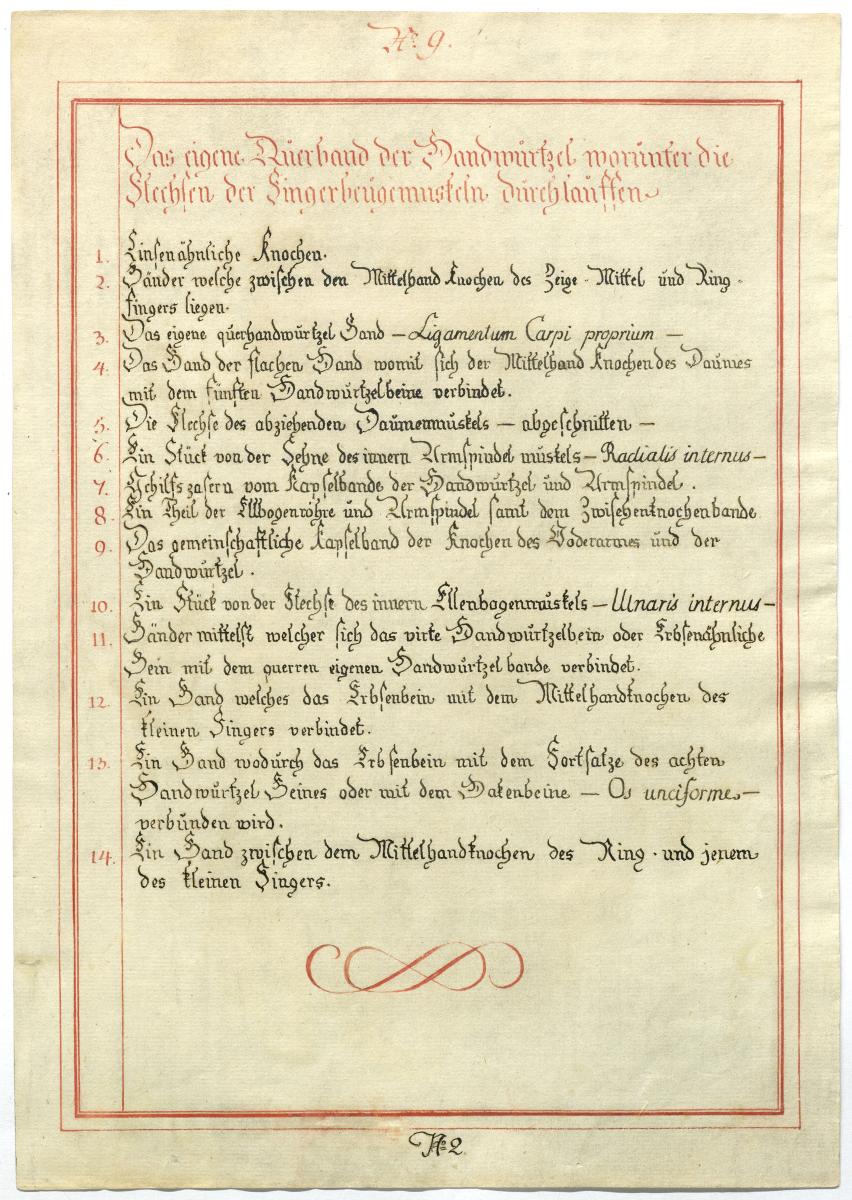 No 9.
Das eigene Querband der Handwurtzel worunter die
Flechsen der Fingerbeugemuskeln durchlauffen
1. Linsenähnliche Knochen.
2. Bänder welche zwischen den Mittelhand Knochen des Zeige- Mittel und Ring-
fingers liegen.
3. Das eigene querhandwurtzel Band – Ligamentum Carpi proprium –
4. Das Band der flachen Hand womit sich der Mittelhand Knochen des Daumes
mit dem fünften Handwurtzelbeine verbindet.
5. Die Flechse des abziehenden Daumenmuskels – abgeschnitten –
6. Ein Stück von der Sehne des innern Armspindel muskels – Radialis internus –
7. Schilfszasern vom Kapselbande der Handwurtzel und Armspindel.
8. Ein Theil der Ellbogenröhre und Armspindel samt dem Zwischenknochenbande
9. Das gemeinschaftliche Kapselband der Knochen des Voderarmes und der
Handwurtzel.
10. Ein Stück von der Flechse des innern Ellenbogenmuskels – Ulnaris internus –
11. Bänder mittelst welcher sich das virte Handwurtzelbein oder Erbsenähnliche
Bein mit dem querren eigenen Handwurtzelbande verbindet.
12. Ein Band welches das Erbsenbein mit dem Mittelhandknochen des
kleinen Fingers verbindet.
13. Ein Band wodurch das Erbsenbein mit dem Fortsatze des achten
Handwurtzel Beines oder mit dem Hakenbeine – Os unciforme –
verbunden wird.
14. Ein Band zwischen dem Mittelhandknochen des Ring- und jenem
des kleinen Fingers.
No 2